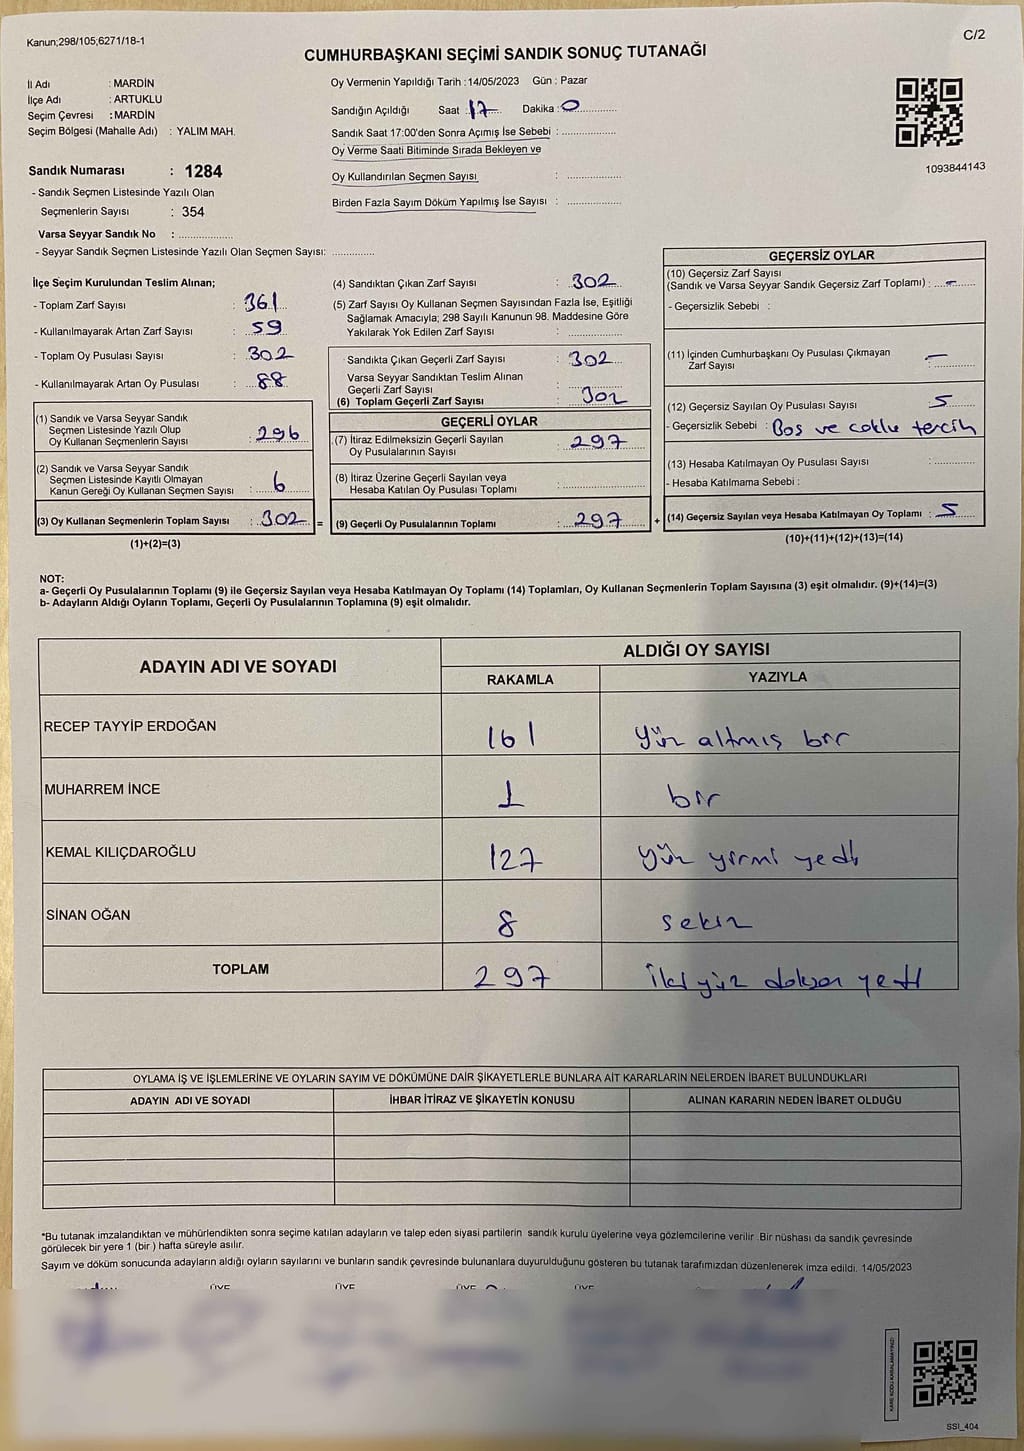 Kanun;298/105,6271/18-1
C/2
CUMHURBAŞKANI SEÇİMİ SANDIK SONUÇ TUTANAĞI
İl Adı : MARDİN
İlçe Adı : ARTUKLU
Seçim Çevresi : MARDİN
Seçim Bölgesi (Mahalle Adı) : YALIM MAH.
Oy Vermenin Yapıldığı Tarih : 14/05/2023 Gün : Pazar
Sandığın Açıldığı Saat 17 Dakika : 0
Sandık Saat 17:00'den Sonra Açımış İse Sebebi :
Oy Verme Saati Bitiminde Sırada Bekleyen ve
Oy Kullandırılan Seçmen Sayısı :
Birden Fazla Sayım Döküm Yapılmış İse Sayısı :
1093844143
Sandık Numarası : 1284
- Sandık Seçmen Listesinde Yazılı Olan
Seçmenlerin Sayısı : 354
Varsa Seyyar Sandık No :
- Seyyar Sandık Seçmen Listesinde Yazılı Olan Seçmen Sayısı:
İlçe Seçim Kurulundan Teslim Alınan;
- Toplam Zarf Sayısı : 361
- Kullanılmayarak Artan Zarf Sayısı : 59
- Toplam Oy Pusulası Sayısı : 302
- Kullanılmayarak Artan Oy Pusulası : 88
(1) Sandık ve Varsa Seyyar Sandık
Seçmen Listesinde Yazılı Olup
Oy Kullanan Seçmenlerin Sayısı : 296
(2) Sandık ve Varsa Seyyar Sandık
Seçmen Listesinde Kayıtlı Olmayan
Kanun Gereği Oy Kullanan Seçmen Sayısı : 6
(3) Oy Kullanan Seçmenlerin Toplam Sayısı : 302 =
(1)+(2)=(3)
(4) Sandıktan Çıkan Zarf Sayısı : 302
(5) Zarf Sayısı Oy Kullanan Seçmen Sayısından Fazla İse, Eşitliği
Sağlamak Amacıyla; 298 Sayılı Kanunun 98. Maddesine Göre
Yakılarak Yok Edilen Zarf Sayısı :
Sandıkta Çıkan Geçerli Zarf Sayısı : 302
Varsa Seyyar Sandıktan Teslim Alınan
Geçerli Zarf Sayısı :
(6) Toplam Geçerli Zarf Sayısı : 302
GEÇERLİ OYLAR
(7) İtiraz Edilmeksizin Geçerli Sayılan
Oy Pusulalarının Sayısı : 297
(8) İtiraz Üzerine Geçerli Sayılan veya
Hesaba Katılan Oy Pusulası Toplamı :
(9) Geçerli Oy Pusulalarının Toplamı : 297 +
GEÇERSİZ OYLAR
(10) Geçersiz Zarf Sayısı
(Sandık ve Varsa Seyyar Sandık Geçersiz Zarf Toplamı) : -
- Geçersizlik Sebebi :
(11) İçinden Cumhurbaşkanı Oy Pusulası Çıkmayan
Zarf Sayısı : -
(12) Geçersiz Sayılan Oy Pusulası Sayısı : 5
- Geçersizlik Sebebi : Boş ve coklu tercih
(13) Hesaba Katılmayan Oy Pusulası Sayısı :
- Hesaba Katılmama Sebebi :
(14) Geçersiz Sayılan veya Hesaba Katılmayan Oy Toplamı : 5
(10)+(11)+(12)+(13)=(14)
NOT:
a- Geçerli Oy Pusulalarının Toplamı (9) ile Geçersiz Sayılan veya Hesaba Katılmayan Oy Toplamı (14) Toplamları, Oy Kullanan Seçmenlerin Toplam Sayısına (3) eşit olmalıdır. (9)+(14)=(3)
b- Adayların Aldığı Oyların Toplamı, Geçerli Oy Pusulalarının Toplamına (9) eşit olmalıdır.
ADAYIN ADI VE SOYADI ALDIĞI OY SAYISI
RAKAMLA YAZIYLA
RECEP TAYYİP ERDOĞAN 161 yüz altmış bir
MUHARREM İNCE 1 bir
KEMAL KILIÇDAROĞLU 127 yüz yirmi yedi
SİNAN OĞAN 8 sekiz
TOPLAM 297 iki yüz doksan yedi
OYLAMA İŞ VE İŞLEMLERİNE VE OYLARIN SAYIM VE DÖKÜMÜNE DAİR ŞİKAYETLERLE BUNLARA AİT KARARLARIN NELERDEN İBARET BULUNDUKLARI
ADAYIN ADI VE SOYADI İHBAR İTİRAZ VE ŞİKAYETİN KONUSU ALINAN KARARIN NEDEN İBARET OLDUĞU
*Bu tutanak imzalandıktan ve mühürlendikten sonra seçime katılan adayların ve talep eden siyasi partilerin sandık kurulu üyelerine veya gözlemcilerine verilir .Bir nüshası da sandık çevresinde
görülecek bir yere 1 (bir ) hafta süreyle asılır.
Sayım ve döküm sonucunda adayların aldığı oyların sayılarını ve bunların sandık çevresinde bulunanlara duyurulduğunu gösteren bu tutanak tarafımızdan düzenlenerek imza edildi. 14/05/2023
ÜYE ÜYE ÜYE ÜYE
KARE KODU KARALAMAYINIZ!
SSI_404